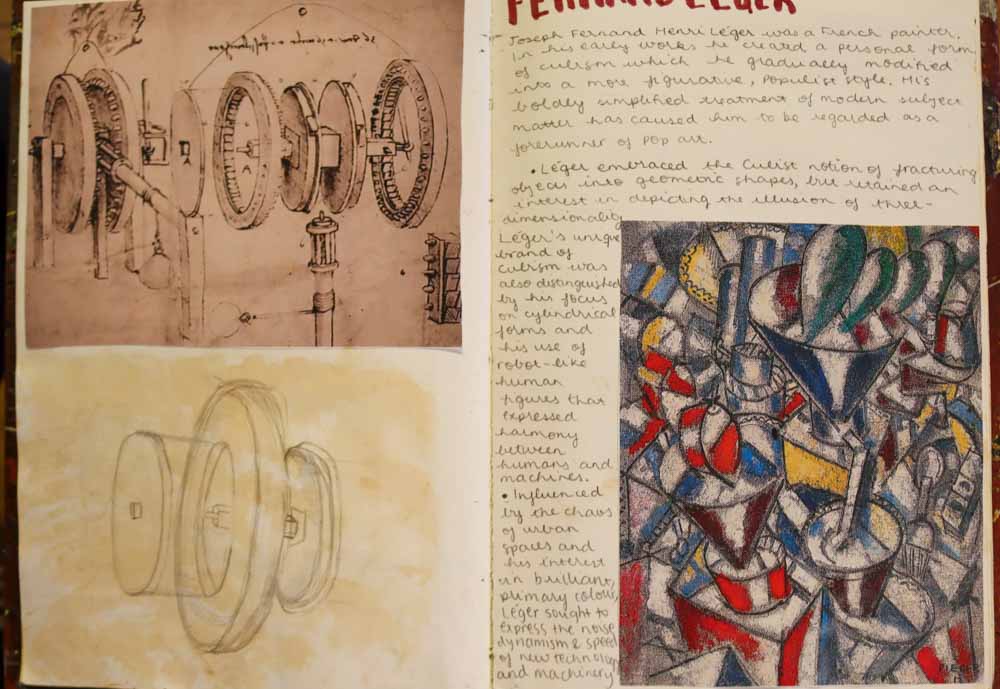 FERNAND LEGER
Joseph Fernand Henri Léger was a French painter.
In his early works he created a personal form
of cubism which he gradually modified
into a more figurative, populist style. His
boldly simplified treatment of modern subject
matter has caused him to be regarded as a
forerunner of pop art.
• Léger embraced the Cubist notion of fracturing
objects into geometric shapes, but retained an
interest in depicting the illusion of three-
dimensionality
Léger's unique
brand of
cubism was
also distinguished
by his focus
on cylindrical
forms and
his use of
robot-like
human
figures that
expressed
harmony
between
humans and
machines.
• Influenced
by the chaos
of urban
spaces and
his interest
in brilliant,
primary colour,
Léger sought to
express the noise,
dynamism & speed
of new technology
and machinery